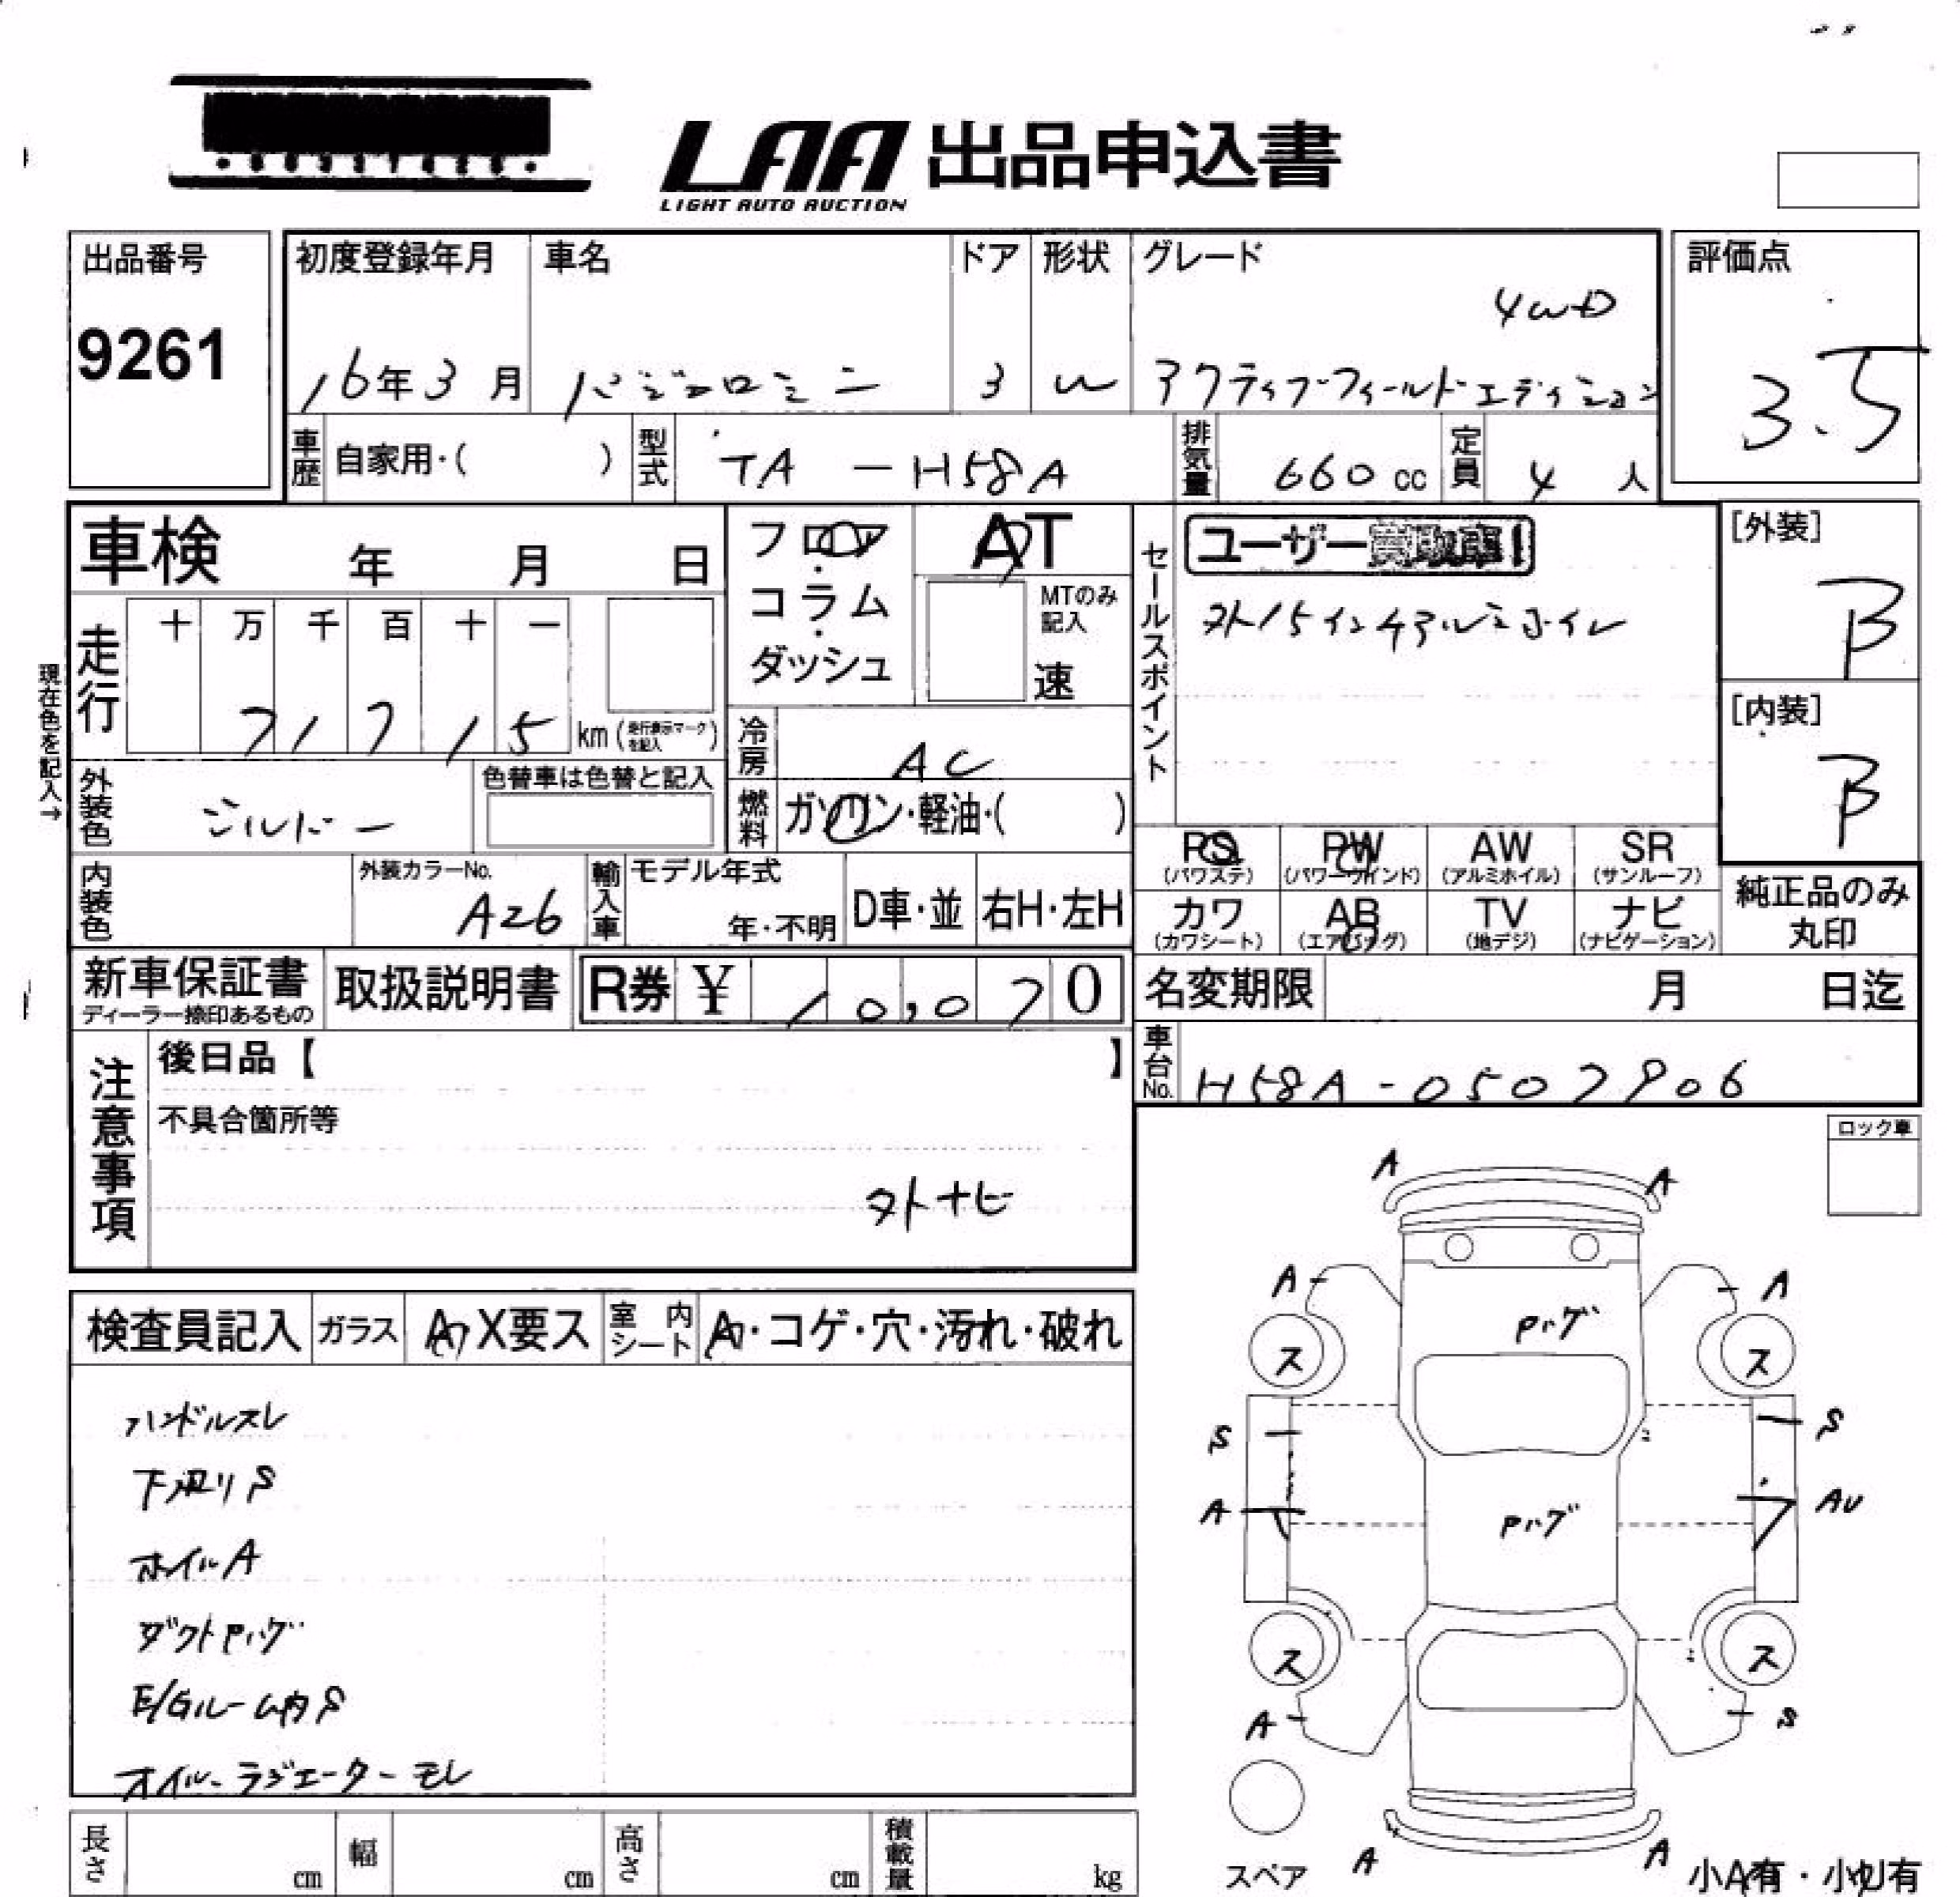 LAA 出品申込書
LIGHT AUTO AUCTION
出品番号
9261
初度登録年月 車名 ドア 形状 グレード
4WD
16年3月 パジェロミニ 3 W アクティブフィールドエディション
評価点
3.5
車歴 自家用・( ) 型式 TA - H58A 排気量 660 cc 定員 4 人
車検 年 月 日
フロア・コラム・ダッシュ
AT
MTのみ記入
速
セールスポイント
ユーザー買取車!
外15インチアルミホイル
[外装]
B
[内装]
B
現在色を記入→
走行 十 万 千 百 十 一
71715 km (走行表示マークを記入)
冷房 AC
外装色 シルバー 色替車は色替と記入
燃料 ガソリン・軽油・( )
PS (パワステ) PW (パワーウインド) AW (アルミホイル) SR (サンルーフ)
カワ (カワシート) AB (エアバッグ) TV (地デジ) ナビ (ナビゲーション)
純正品のみ
丸印
内装色 外装カラーNo. A26 輸入車 モデル年式 年・不明 D車・並 右H・左H
新車保証書 取扱説明書 R券 ¥ 10,070
ディーラー捺印あるもの
名変期限 月 日迄
車台No. H58A-0507906
注意事項
後日品【 】
不具合箇所等
外ナビ
ロック車
検査員記入 ガラス A X要ス 室内シート A・コゲ・穴・汚れ・破れ
ハンドルスレ
下廻りS
ホイルA
ダクトPハゲ
E/Gルーム内S
オイル・ラジエーターモレ
A A
A A
Pハゲ
ス ス
S S
A Pハゲ AU
ス ス
A S
スペア A A 小A有・小U有
長さ cm 幅 cm 高さ cm 積載量 kg